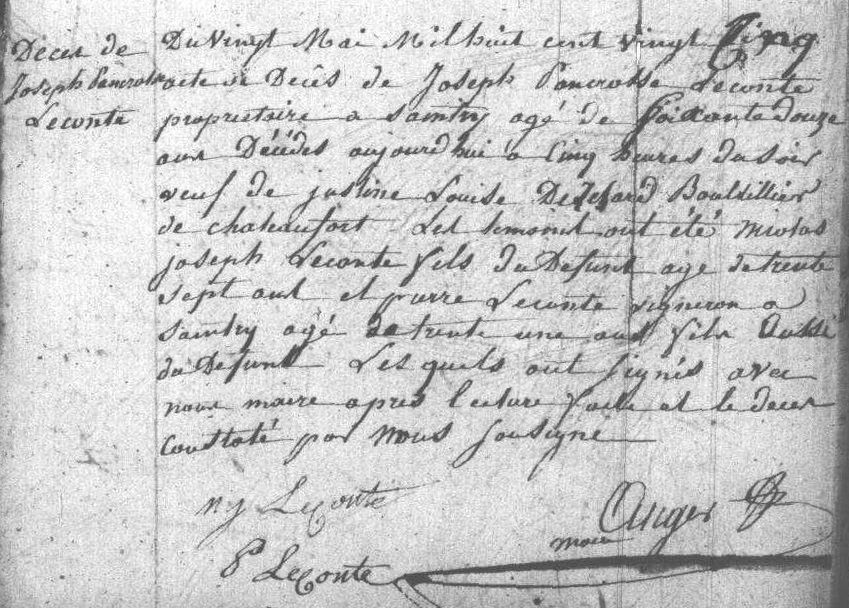 Décès de
Joseph Pancrasse
Leconte
Du Vingt Mai Mil huit cent vingt Cinq
acte de Décès de Joseph Pancrasse Leconte
proprietaire a Saintry agé de Soixante douze
ans Décédés aujourd'hui a Cinq heures du Soir
veuf de justine Louise Bouteillier
de chateaufort Les temoins ont été Nicolas
joseph Leconte fils du Defunt agé de trente
Sept ans et pierre Leconte vigneron a
Saintry agé de trente une ans fils Aussi
du Defunt Les quels ont Signés avec
nous maire apres lecture faite et le deces
Constaté par Nous Sousigné
nj Leconte
Anger
maire
P Leconte